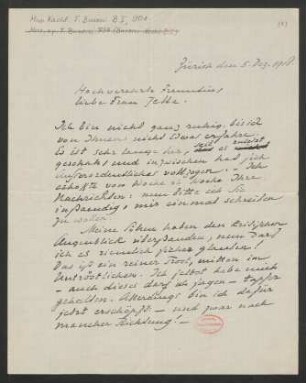 Zürich den 5. Dez. 1918
Hochverehrte Freundin,
liebe Frau Jelka.
Ich bin nicht ganz ruhig, bis ich
von Ihnen nicht etwas erfahre.
Es ist sehr lange her, seit es zuletzt
geschah und inzwischen hat sich
Ausserordentliches vollzogen. – Ich
erhoffte von Woche zu Woche Ihre
Nachrichten: nun bitte ich Sie
inständig mir einmal schreiben
zu wollen.
Meine Söhne haben den kritischen
Augenblick überstanden, nun darf
ich es ziemlich sicher glauben!
Das ist ein reiner Trost, mitten im
Untröstlichen. Ich selbst habe mich
– auch dieses darf ich sagen – tapfer
gehalten. Allerdings bin ich dafür
jetzt erschöpft – und zwar nach
mancher Richtung! –